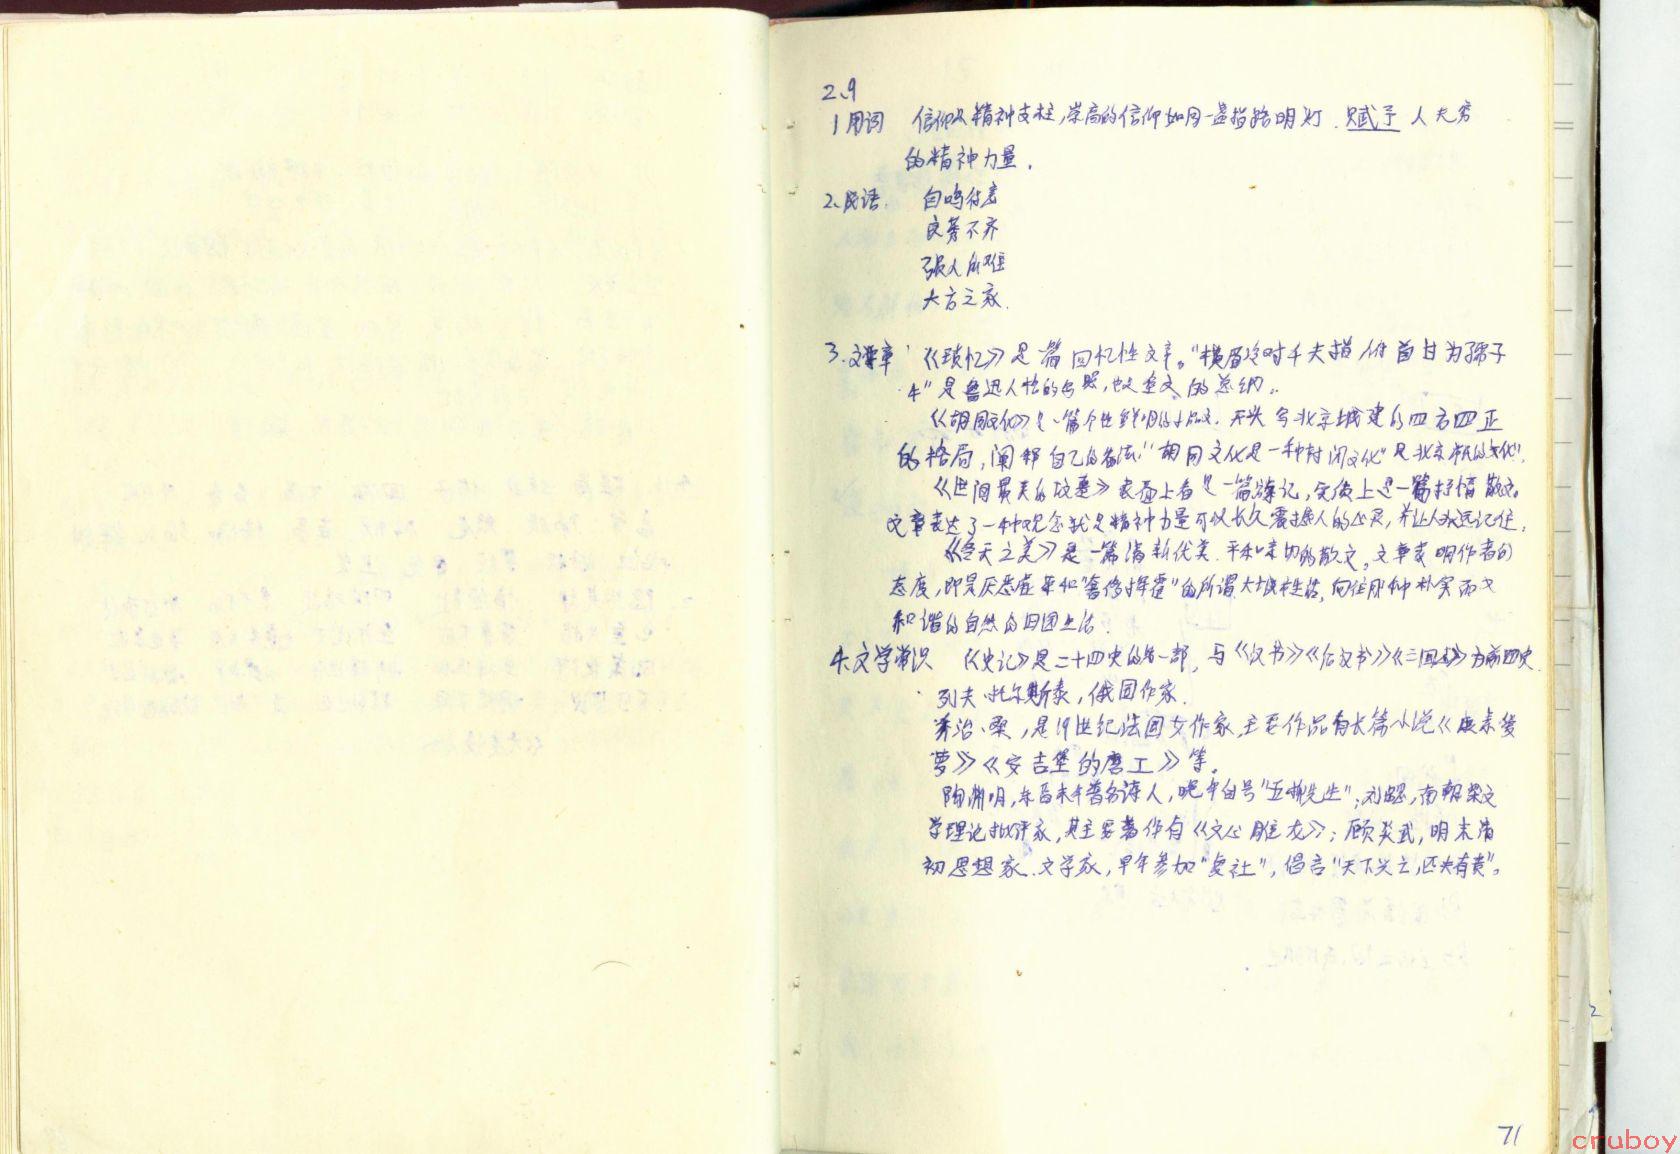 2、9
1 用词 信仰是精神支柱，崇高的信仰如同一盏指路明灯．赋予人无穷
的精神力量．
2、成语． 自鸣得意
良莠不齐
强人所难
大方之家．
3．文章 《琐忆》是一篇回忆性文章。"横眉冷对千夫指，俯首甘为孺子
牛"是鲁迅人格的写照，也是全文的总纲。
《胡同文化》是一篇个性鲜明的小品文．开头写北京城建的四方四正
的格局，阐释自己的看法："胡同文化是一种封闭文化"是北京市民的文化"．
《世间最美的坟墓》表面上看是一篇游记，实质上是一篇抒情散文。
文章表达了一种观念就是精神力量可以长久震撼人的心灵，并让人永远记住．
《冬天之美》是一篇清新优美．平和亲切的散文。文章表明作者的
态度，即是厌恶虚荣和"奢侈挥霍"的所谓大城市生活，向往那种朴实而又
和谐的自然的田园生活．
4．文学常识 《史记》是二十四史的第一部，与《汉书》《后汉书》《三国志》为前四史．
列夫·托尔斯泰，俄国作家．
乔治·桑，是19世纪法国女作家，主要作品有长篇小说《康素爱
萝》《安吉堡的磨工》等。
陶渊明，东晋末年著名诗人，晚年自号"五柳先生"；刘勰，南朝梁文
学理论批评家，其主要著作有《文心雕龙》；顾炎武，明末清
初思想家．文学家，早年参加"复社"，倡言"天下兴亡，匹夫有责"。
71
2
cruboy